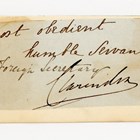 ost obedient
humble Servan
Foreign Secretary
Clarendon